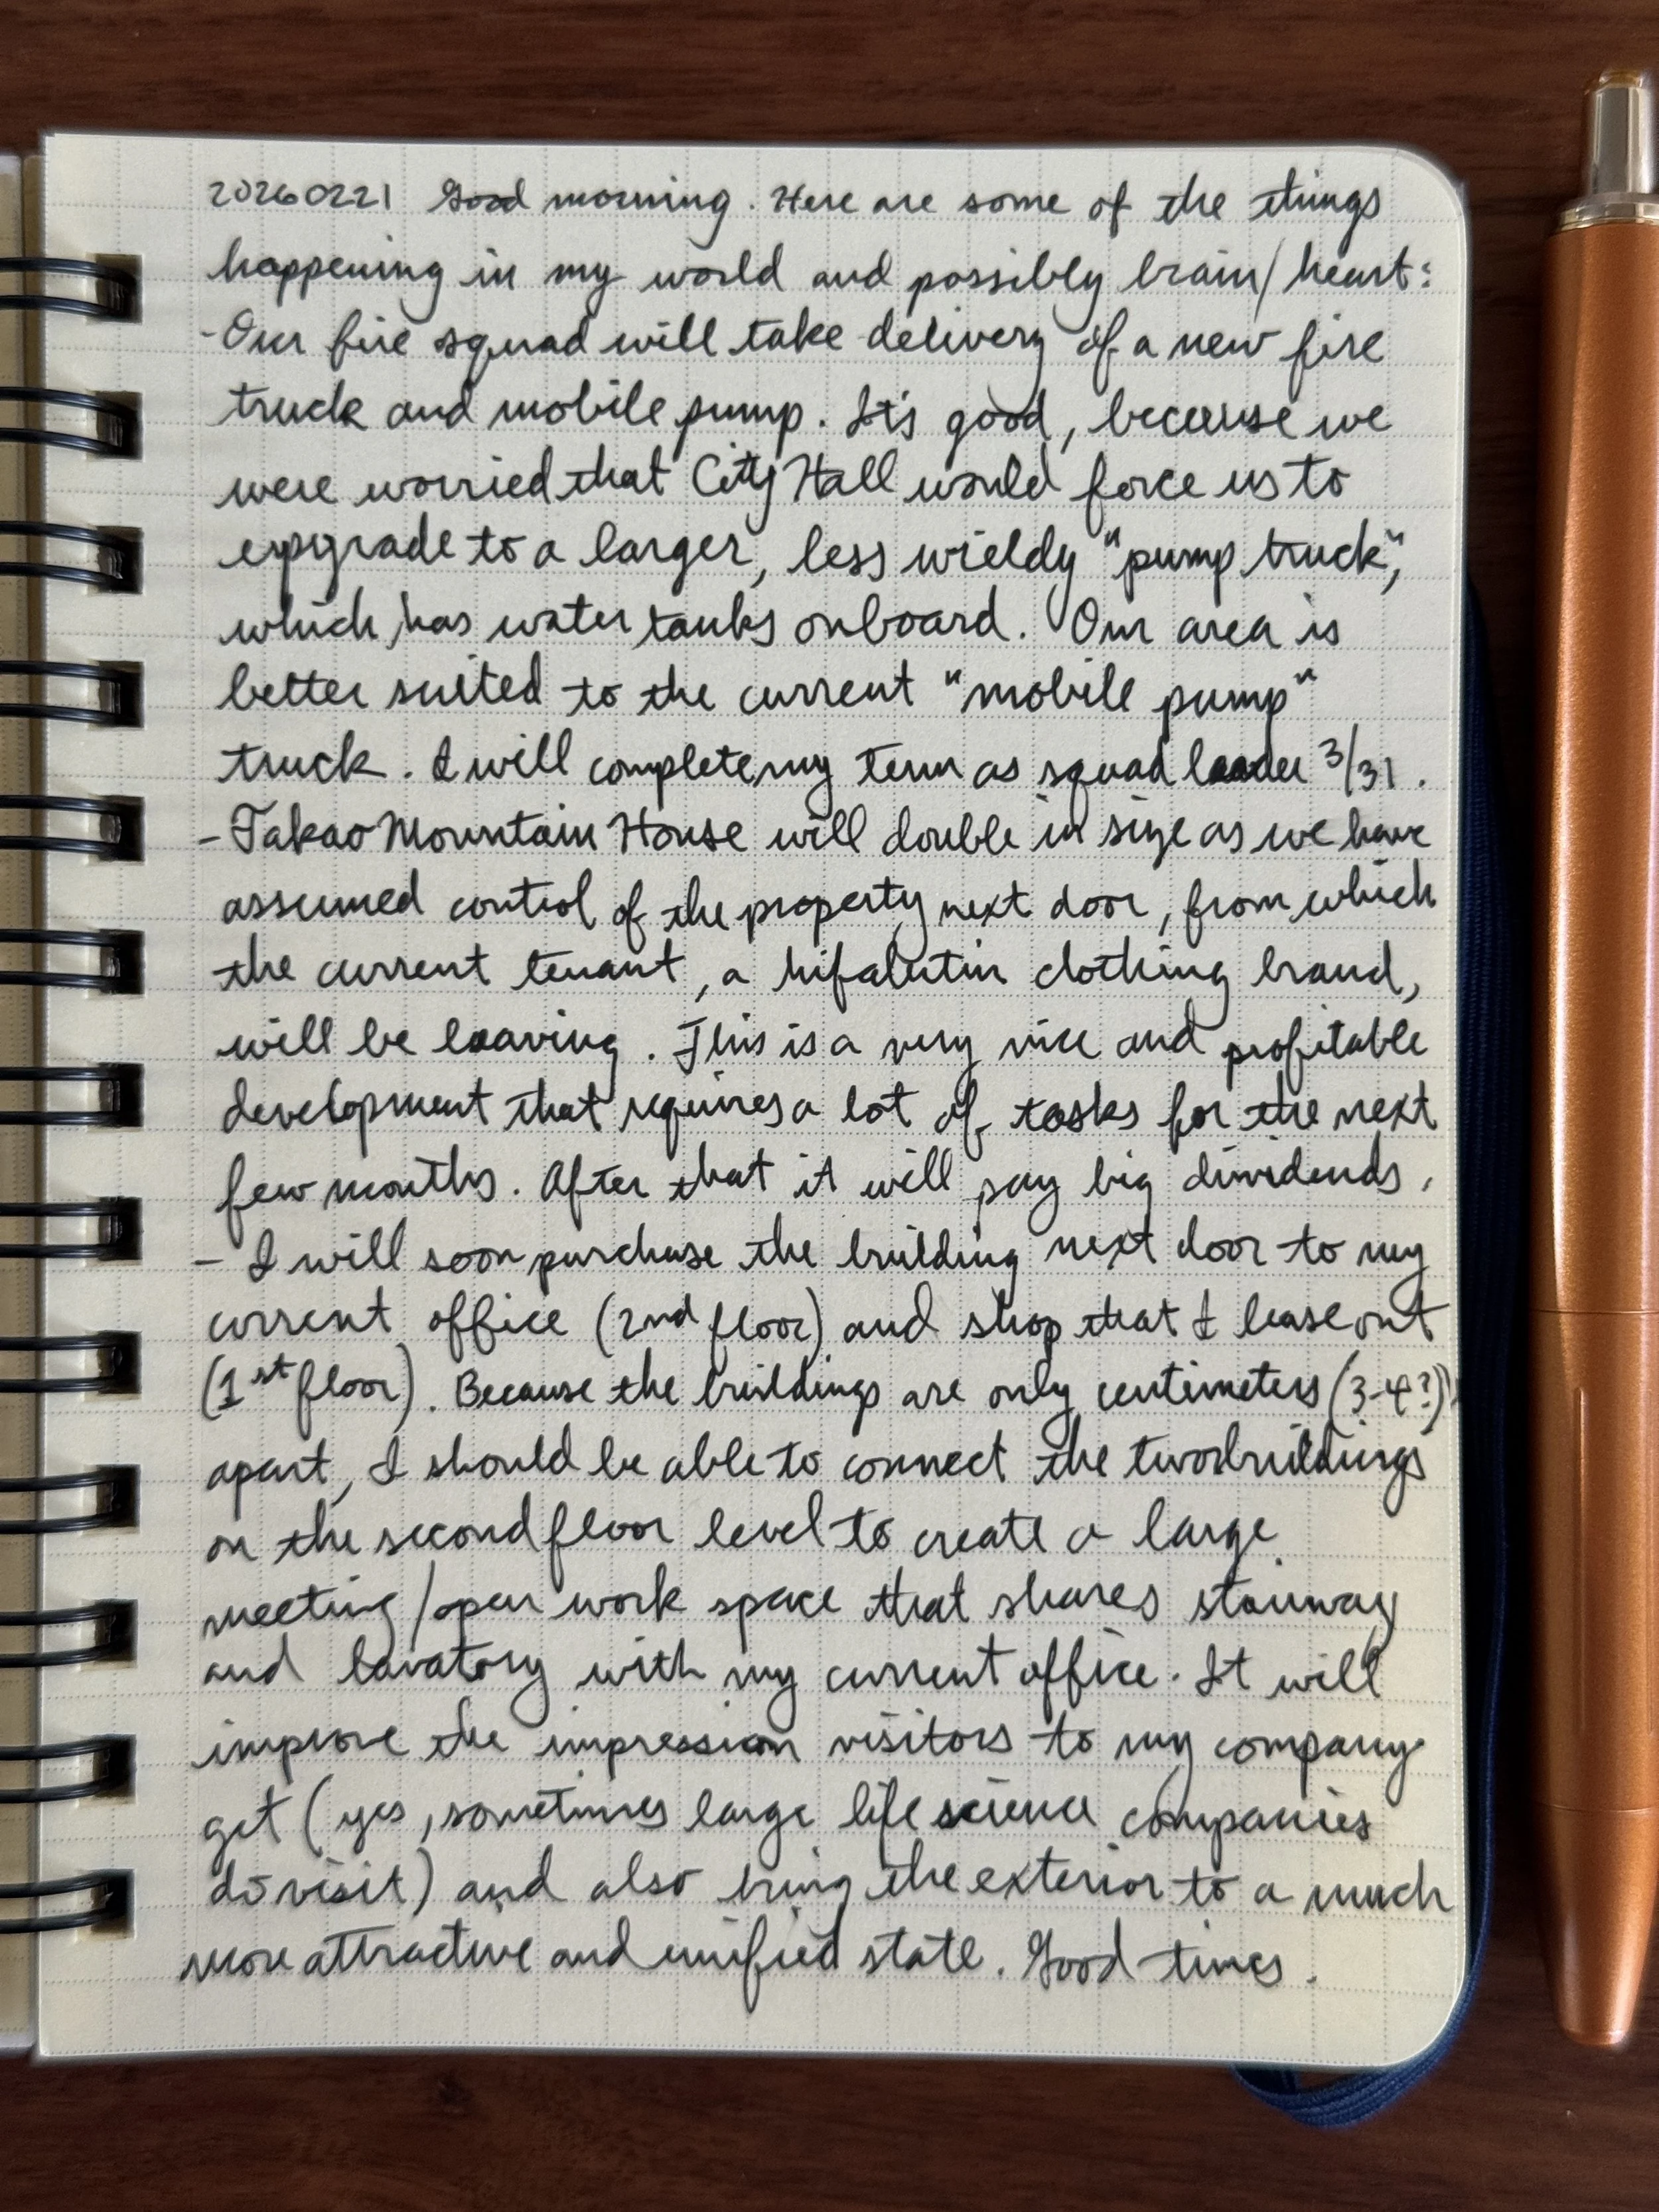 20260221 Good morning. Here are some of the things
happening in my world and possibly brain/heart:
- Our fire squad will take delivery of a new fire
truck and mobile pump. It's good, because we
were worried that City Hall would force us to
upgrade to a larger, less wieldy "pump truck",
which has water tanks onboard. Our area is
better suited to the current "mobile pump"
truck. I will complete my term as squad leader 3/31.
- Takao Mountain House will double in size as we have
assumed control of the property next door, from which
the current tenant, a hifalutin clothing brand,
will be leaving. This is a very nice and profitable
development that requires a lot of tasks for the next
few months. After that it will pay big dividends.
- I will soon purchase the building next door to my
current office (2nd floor) and shop that I lease out
(1st floor). Because the buildings are only centimeters (3-4?)
apart, I should be able to connect the two buildings
on the second floor level to create a large
meeting/open work space that shares stairway
and lavatory with my current office. It will
improve the impression visitors to my company
get (yes, sometimes large life science companies
do visit) and also bring the exterior to a much
more attractive and unified state. Good times.